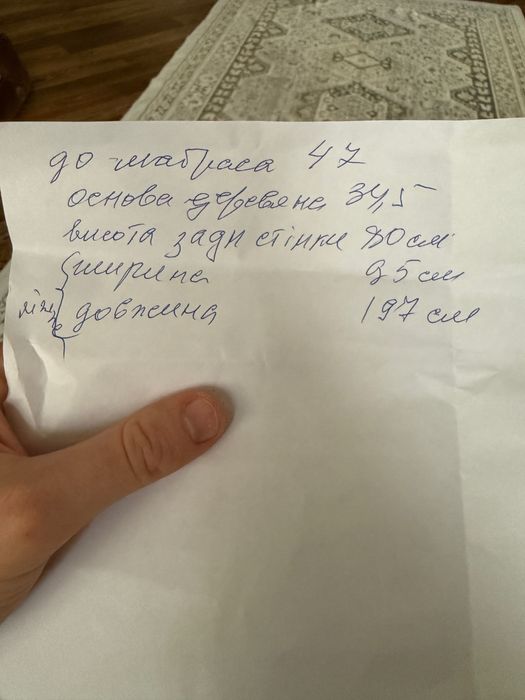 до матраса 47
основа деревяна 34,5
висота задн стінки 80 см
ширина 95 см
ліжко довжина 197 см